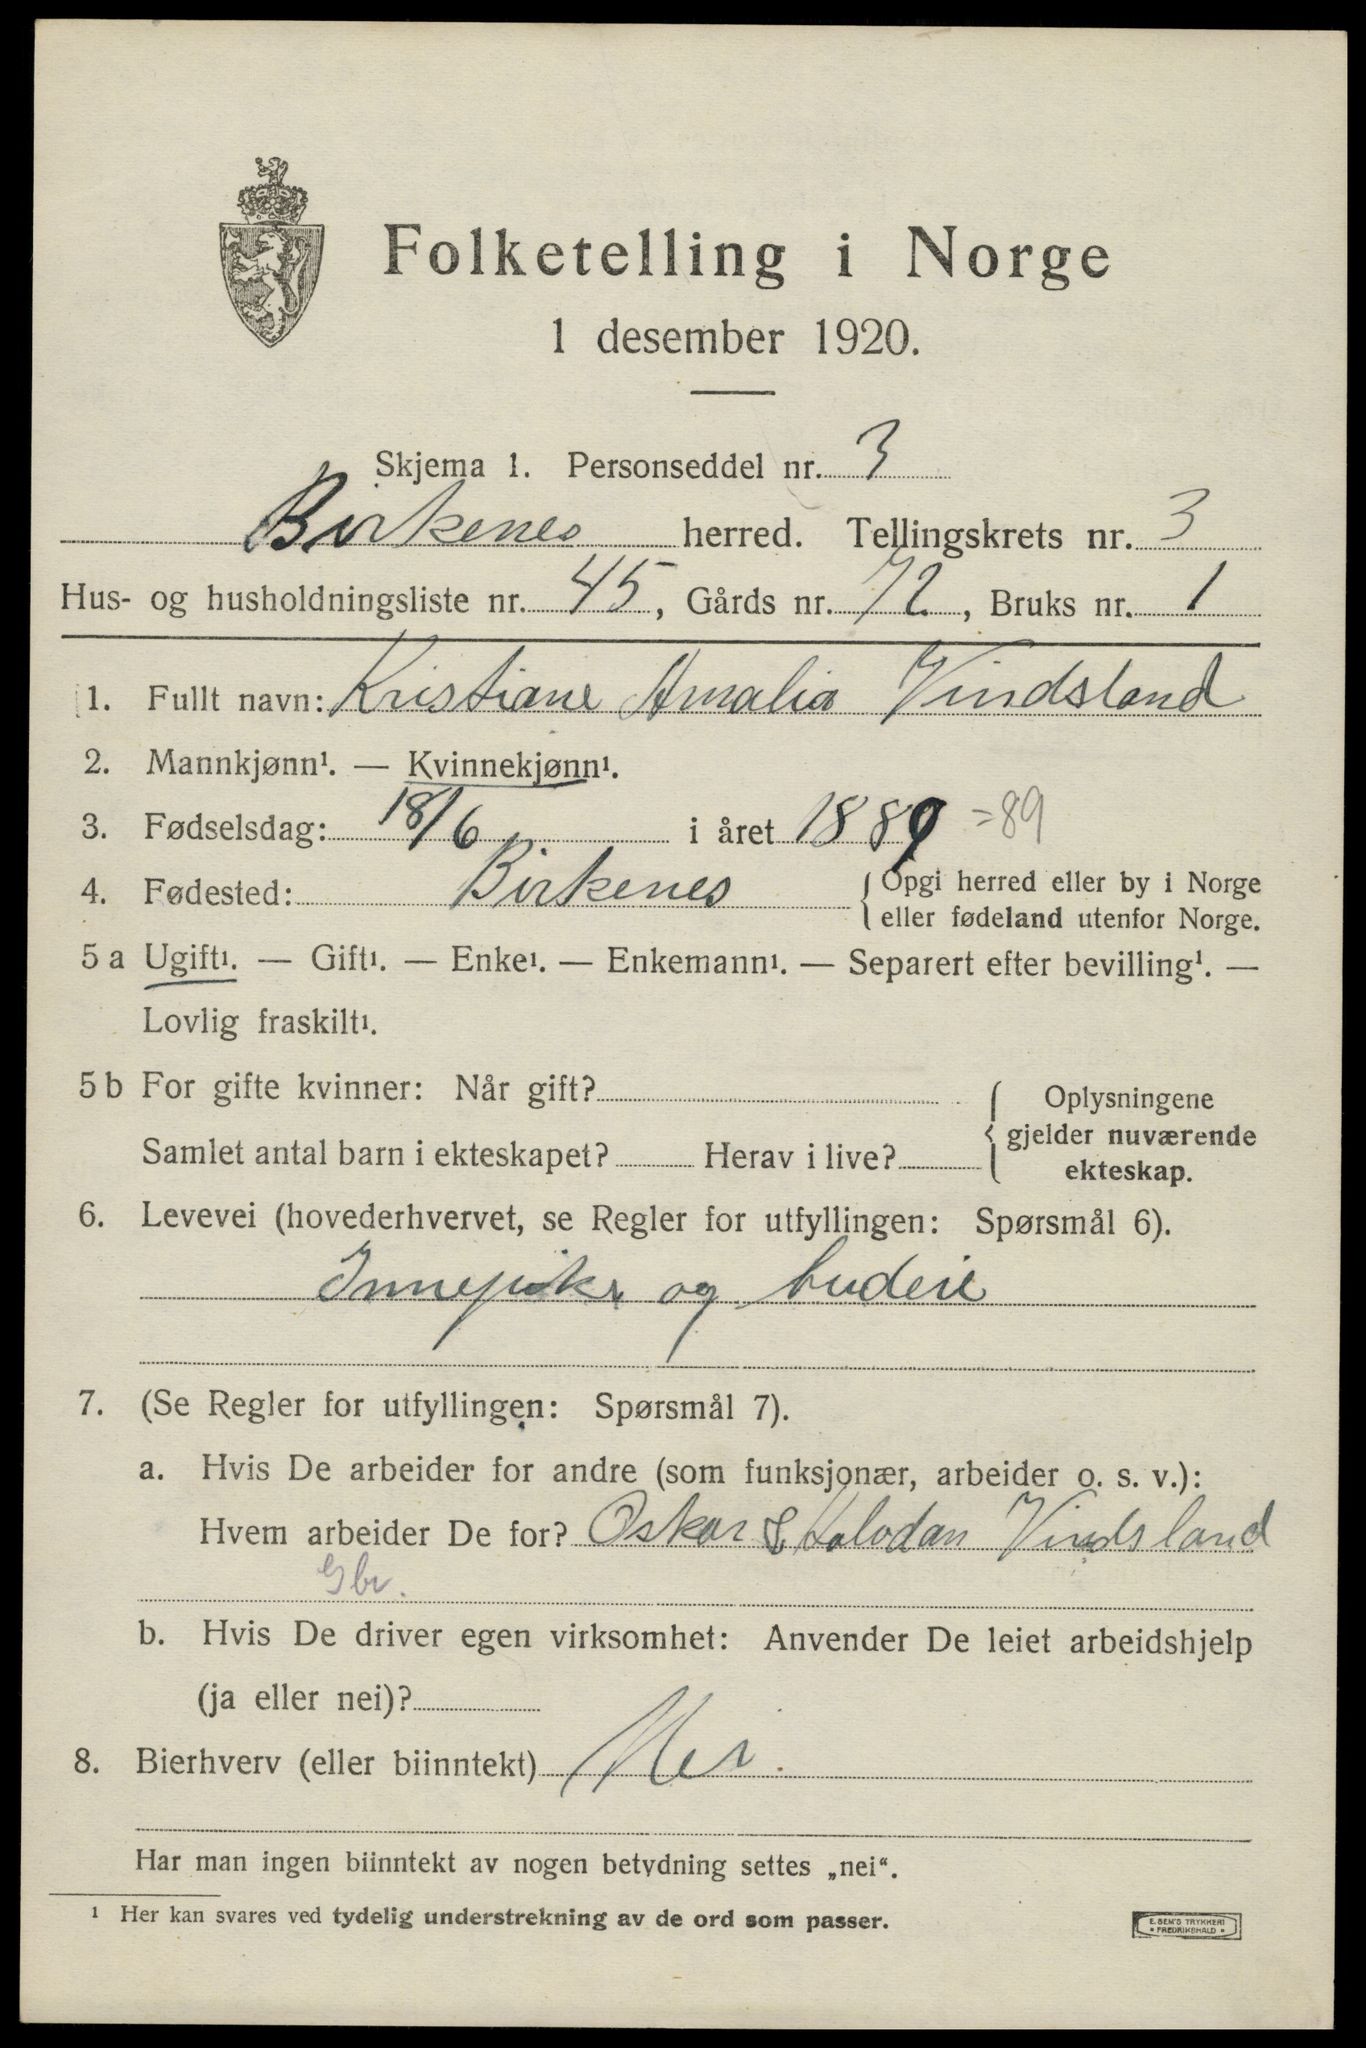 Folketelling i Norge
1 desember 1920.
Skjema 1. Personseddel nr. 3
Birkenes herred. Tellingskrets nr. 3
Hus- og husholdningsliste nr. 45, Gårds nr. 72, Bruks nr. 1
1. Fullt navn: Kristiane Amalia Vindsland
2. Mannkjønn¹. — Kvinnekjønn¹.
3. Fødselsdag: 18/6 i året 1889 =89
4. Fødested: Birkenes {Opgi herred eller by i Norge
eller fødeland utenfor Norge.
5 a Ugift¹. — Gift¹. — Enke¹. — Enkemann¹. — Separert efter bevilling¹. —
Lovlig fraskilt¹.
5 b For gifte kvinner: Når gift?
Samlet antal barn i ekteskapet? Herav i live?
{Oplysningene
gjelder nuværende
ekteskap.
6. Levevei (hovederhvervet, se Regler for utfyllingen: Spørsmål 6).
Innepike og budeie
7. (Se Regler for utfyllingen: Spørsmål 7).
a. Hvis De arbeider for andre (som funksjonær, arbeider o. s. v.):
Hvem arbeider De for? Oskar & Halvdan Vindsland
Gbr.
b. Hvis De driver egen virksomhet: Anvender De leiet arbeidshjelp
(ja eller nei)?
8. Bierhverv (eller biinntekt) Nei.
Har man ingen biinntekt av nogen betydning settes „nei“.
¹ Her kan svares ved tydelig understrekning av de ord som passer.
E. SEM'S TRYKKERI
• FREDRIKSHALD •